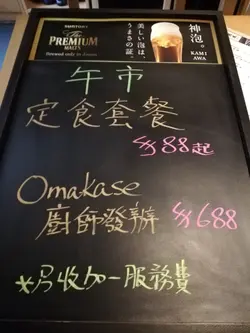 SUNTORY
The
PREMIUM
MALT'S
美しい泡は、
うまさの証。
神泡。
KAMI
AWA
午市
定食套餐
$88起
Omakase
廚師發辦 $688
*另收加一服務費